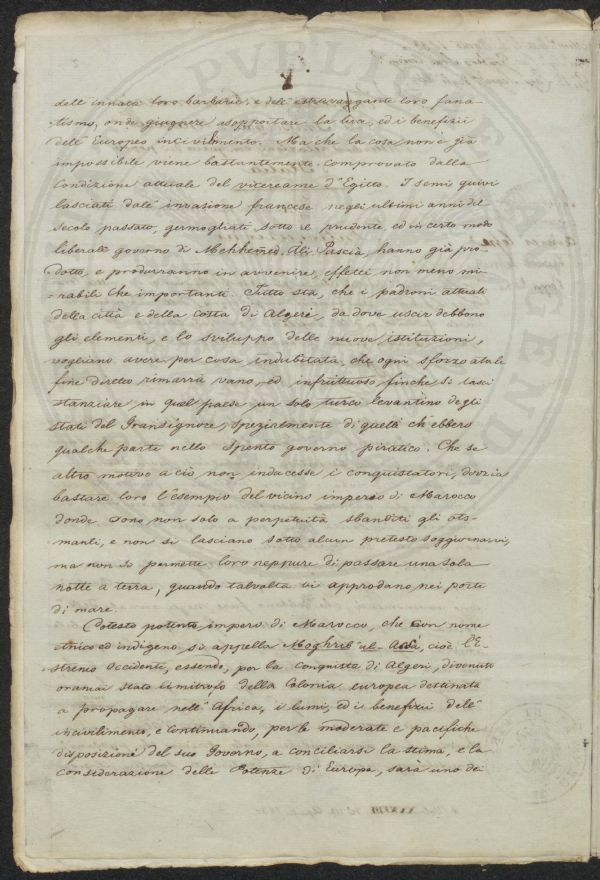 dell'innata loro barbarie, e dell'estravagante loro fana-
tismo, onde giugnere a sopportare la luce, ed i benefizii
dell'Europeo incivilimento. Ma che la cosa non è già
impossibile viene bastantemente comprovato dalla
condizione attuale del vicereame d'Egitto. I semi quivi
lasciati dall'invasione francese negli ultimi anni del
secolo passato, germogliati sotto il prudente, ed in certo modo
liberale governo di Mehhemed-Ali Pascià, hanno già pro-
dotto, e produrranno in avvenire, effetti non meno mi-
rabili che importanti. Tutto sta, che i padroni attuali
della città e della Costa di Algeri, da dove uscir debbono
gli elementi, e lo sviluppo delle nuove istituzioni,
vogliano avere per cosa indubitata, che ogni sforzo a tale
fine diretto rimarrà vano, ed infruttuoso, finchè si lasci
stanziare in quel paese un solo turco levantino degli
stati del Gransignore, spezialmente di quelli ch'ebbero
qualche parte nello spento governo piratico. Che se
altro motivo a ciò non inducesse i conquistatori, dovria
bastare loro l'esempio del vicino impero di Marocco
donde sono non solo a perpetuità sbanditi gli oto-
manli, e non si lasciano sotto alcun pretesto soggiornarvi,
ma non si permette loro neppure di passare una sola
notte a terra, quando talvolta vi approdano nei porti
di mare.
Cotesto potente impero di Marocco, che con nome
etnico ed indigeno si appella Moghrib-ul-Acsà, cioè l'E-
stremo Occidente, essendo, per la conquista di Algeri, divenuto
oramai stato limitrofo della Colonia europea destinata
a propagare nell'Africa, i lumi, ed i benefizii dell'
incivilimento, e continuando, per le moderate e pacifiche
disposizioni del suo Governo, a conciliarsi la stima, e la
considerazione delle Potenze di Europa, sarà uno dei